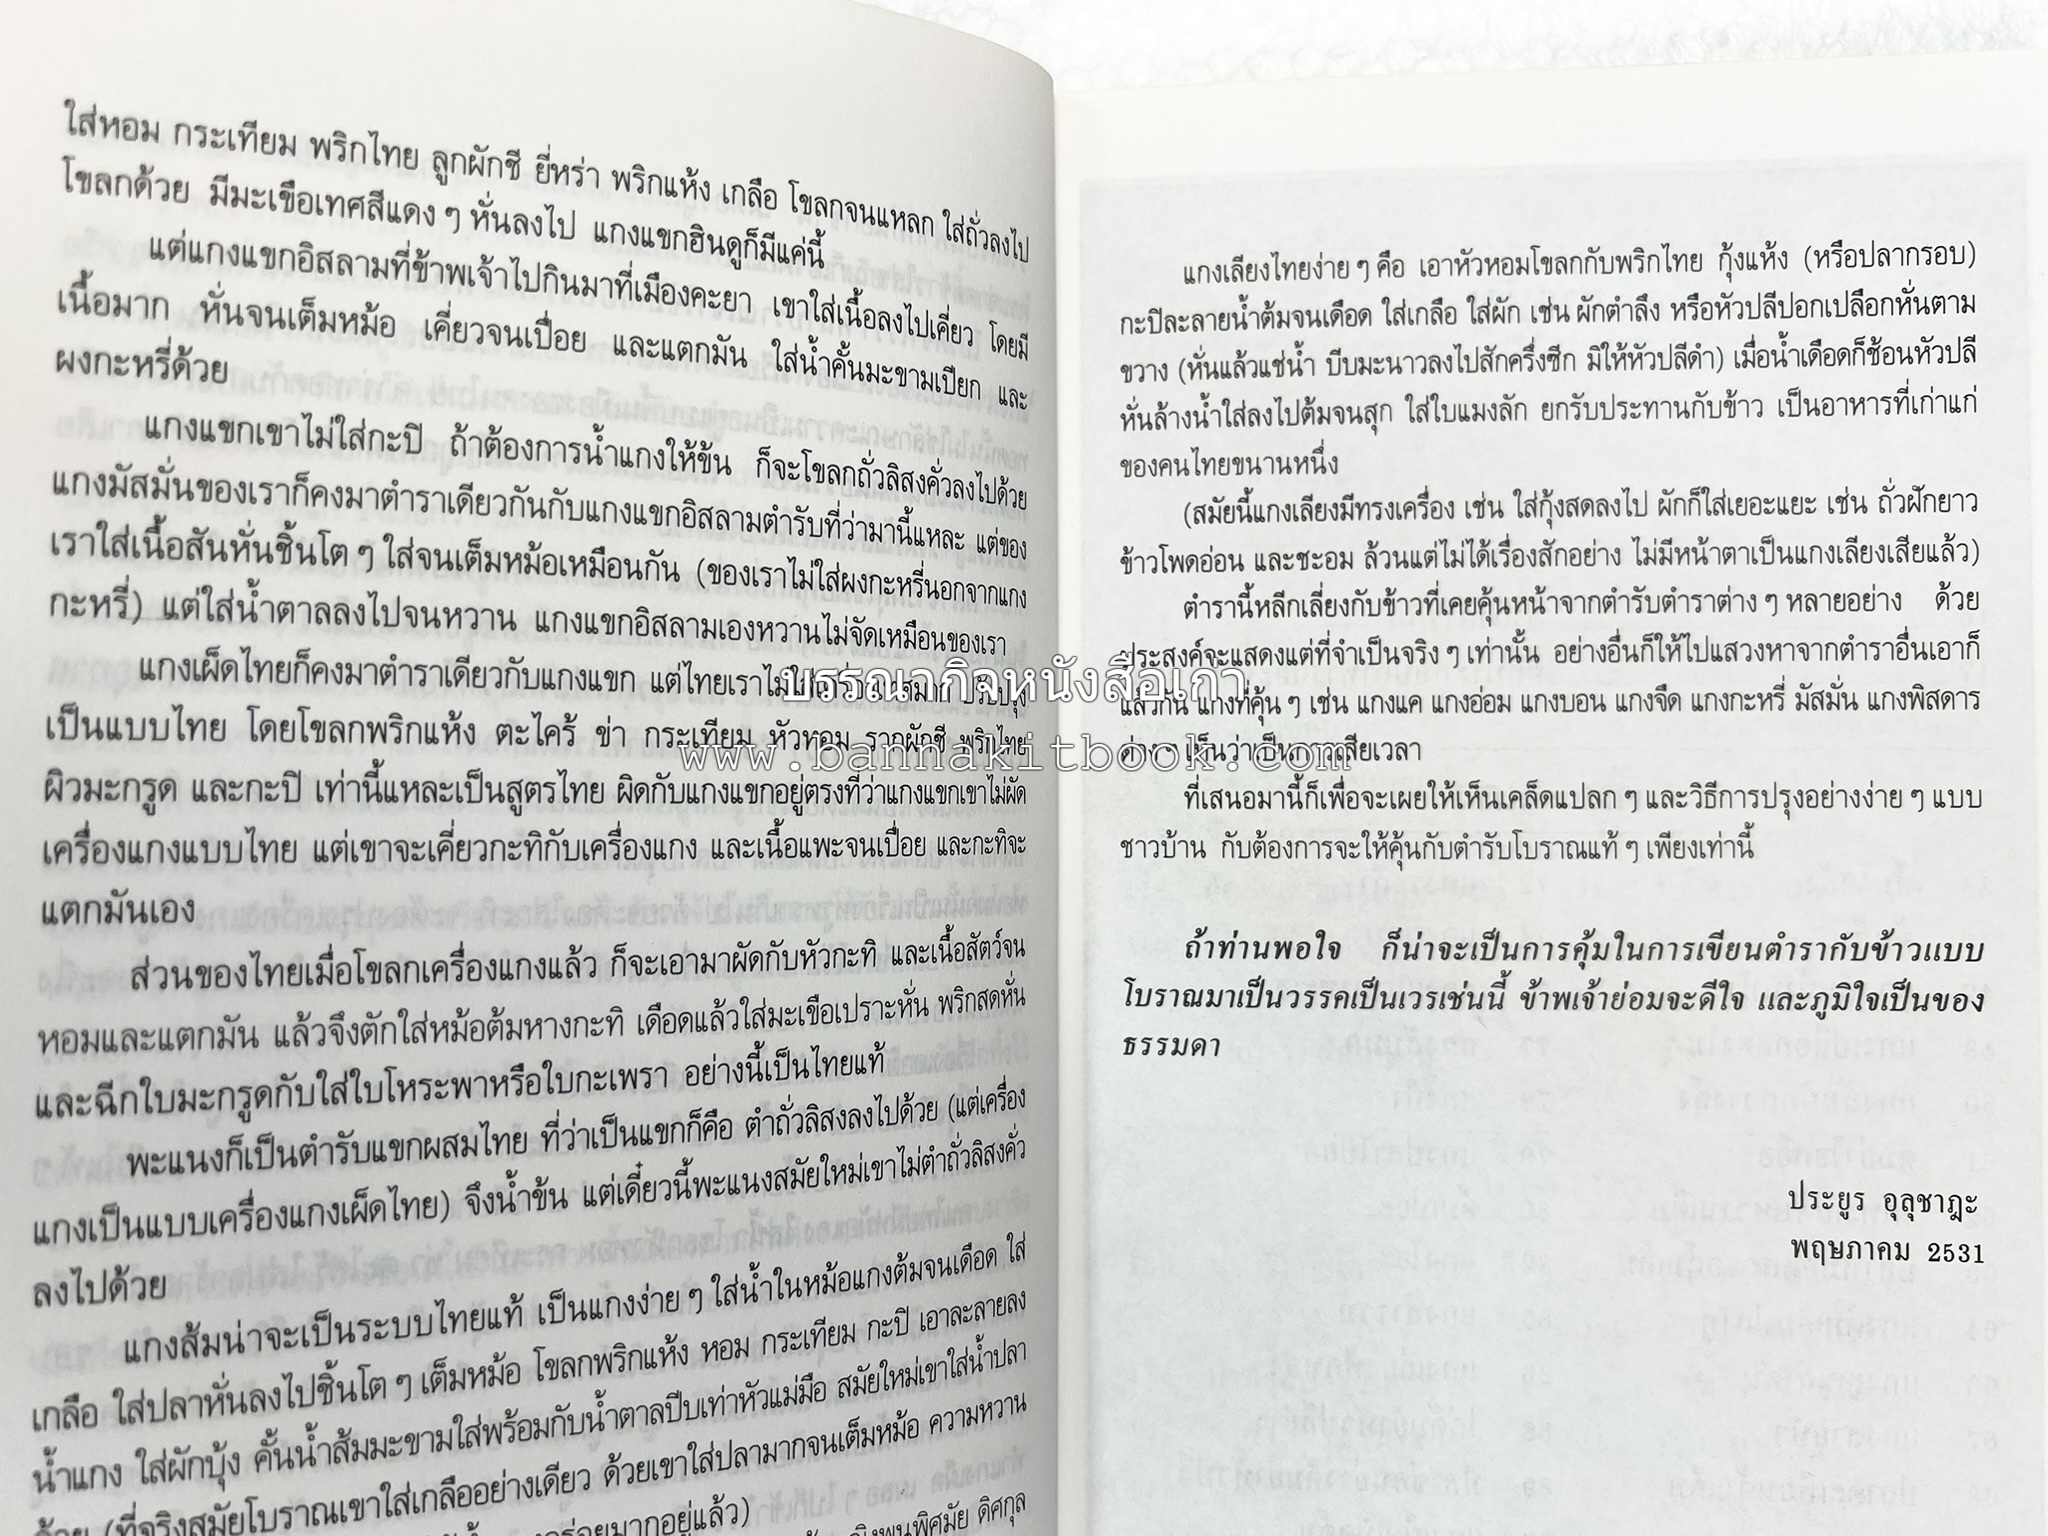 ใส่หอม กระเทียม พริกไทย ลูกผักชี ยี่หร่า พริกแห้ง เกลือ โขลกจนแหลก ใส่ถั่วลงไป
โขลกด้วย มีมะเขือเทศสีแดง ๆ หั่นลงไป แกงแขกฮินดูก็มีแค่นี้
แต่แกงแขกอิสลามที่ข้าพเจ้าไปกินมาที่เมืองคะยา เขาใส่เนื้อลงไปเคี่ยว โดยมี
เนื้อมาก หั่นจนเต็มหม้อ เคี่ยวจนเปื่อย และแตกมัน ใส่น้ำคั้นมะขามเปียก และ
ผงกะหรี่ด้วย
แกงแขกเขาไม่ใส่กะปิ ถ้าต้องการน้ำแกงให้ข้น ก็จะโขลกถั่วลิสงคั่วลงไปด้วย
แกงมัสมั่นของเราก็คงมาตำราเดียวกันกับแกงแขกอิสลามตำรับที่ว่ามานี้แหละ แต่ของ
เราใส่เนื้อสันหั่นชิ้นโต ๆ ใส่จนเต็มหม้อเหมือนกัน (ของเราไม่ใส่ผงกะหรี่นอกจากแกง
กะหรี่) แต่ใส่น้ำตาลลงไปจนหวาน แกงแขกอิสลามเองหวานไม่จัดเหมือนของเรา
แกงเผ็ดไทยก็คงมาตำราเดียวกับแกงแขก แต่ไทยเราไม่ ปรับปรุง
เป็นแบบไทย โดยโขลกพริกแห้ง ตะไคร้ ข่า กระเทียม หัวหอม รากผักชี พริกไทย
ผิวมะกรูด และกะปิ เท่านี้แหละเป็นสูตรไทย ผิดกับแกงแขกอยู่ตรงที่ว่าแกงแขกเขาไม่ผัด
เครื่องแกงแบบไทย แต่เขาจะเคี่ยวกะทิกับเครื่องแกง และเนื้อแพะจนเปื่อย และกะทิจะ
แตกมันเอง
ส่วนของไทยเมื่อโขลกเครื่องแกงแล้ว ก็จะเอามาผัดกับหัวกะทิ และเนื้อสัตว์จน
หอมและแตกมัน แล้วจึงตักใส่หม้อต้มหางกะทิ เดือดแล้วใส่มะเขือเปราะหั่น พริกสดหั่น
และฉีกใบมะกรูดกับใส่ใบโหระพาหรือใบกะเพรา อย่างนี้เป็นไทยแท้
พะแนงก็เป็นตำรับแขกผสมไทย ที่ว่าเป็นแขกก็คือ ตำถั่วลิสงลงไปด้วย (แต่เครื่อง
แกงเป็นแบบเครื่องแกงเผ็ดไทย) จึงน้ำข้น แต่เดี๋ยวนี้พะแนงสมัยใหม่เขาไม่ตำถั่วลิสงคั่ว
ลงไปด้วย
แกงส้มน่าจะเป็นระบบไทยแท้ เป็นแกงง่าย ๆ ใส่น้ำในหม้อแกงต้มจนเดือด ใส่
เกลือ ใส่ปลาหั่นลงไปชิ้นโต ๆ เต็มหม้อ โขลกพริกแห้ง หอม กระเทียม กะปิ เอาละลายลง
น้ำแกง ใส่ผักบุ้ง คั้นน้ำส้มมะขามใส่พร้อมกับน้ำตาลปีบเท่าหัวแม่มือ สมัยใหม่เขาใส่น้ำปลา
ด้วย (ที่จริงสมัยโบราณเขาใส่เกลืออย่างเดียว ด้วยเขาใส่ปลามากจนเต็มหม้อ ความหวาน
อร่อยมากอยู่แล้ว)
พูนพิศมัย ดิศกุล
แกงเลียงไทยง่าย ๆ คือ เอาหัวหอมโขลกกับพริกไทย กุ้งแห้ง (หรือปลากรอบ)
กะปิละลายน้ำต้มจนเดือด ใส่เกลือ ใส่ผัก เช่น ผักตำลึง หรือหัวปลีปอกเปลือกหั่นตาม
ขวาง (หั่นแล้วแช่น้ำ บีบมะนาวลงไปสักครึ่งซีก มิให้หัวปลีดำ) เมื่อน้ำเดือดก็ช้อนหัวปลี
หั่นล้างน้ำใส่ลงไปต้มจนสุก ใส่ใบแมงลัก ยกรับประทานกับข้าว เป็นอาหารที่เก่าแก่
ของคนไทยขนานหนึ่ง
(สมัยนี้แกงเลียงมีทรงเครื่อง เช่น ใส่กุ้งสดลงไป ผักก็ใส่เยอะแยะ เช่น ถั่วฝักยาว
ข้าวโพดอ่อน และชะอม ล้วนแต่ไม่ได้เรื่องสักอย่าง ไม่มีหน้าตาเป็นแกงเลียงเสียแล้ว)
ตำรานี้หลีกเลี่ยงกับข้าวที่เคยคุ้นหน้าจากตำรับตำราต่าง ๆ หลายอย่าง ด้วย
ประสงค์จะแสดงแต่ที่จำเป็นจริง ๆ เท่านั้น อย่างอื่นก็ให้ไปแสวงหาจากตำราอื่นเอาก็
แล้วกัน แกงที่คุ้น ๆ เช่น แกงแค แกงอ่อม แกงบอน แกงจืด แกงกะหรี่ มัสมั่น แกงพิสดาร
ต่าง ๆ เห็นว่าเป็นการเสียเวลา
ที่เสนอมานี้ก็เพื่อจะเผยให้เห็นเคล็ดแปลก ๆ และวิธีการปรุงอย่างง่าย ๆ แบบ
ชาวบ้าน กับต้องการจะให้คุ้นกับตำรับโบราณแท้ ๆ เพียงเท่านี้
ถ้าท่านพอใจ ก็น่าจะเป็นการคุ้มในการเขียนตำรากับข้าวแบบ
โบราณมาเป็นวรรคเป็นเวรเช่นนี้ ข้าพเจ้าย่อมจะดีใจ และภูมิใจเป็นของ
ธรรมดา
ประยูร อุลุชาฎะ
พฤษภาคม 2531
บรรณากิจหนังสือเก่า
www.bannakitbook.com